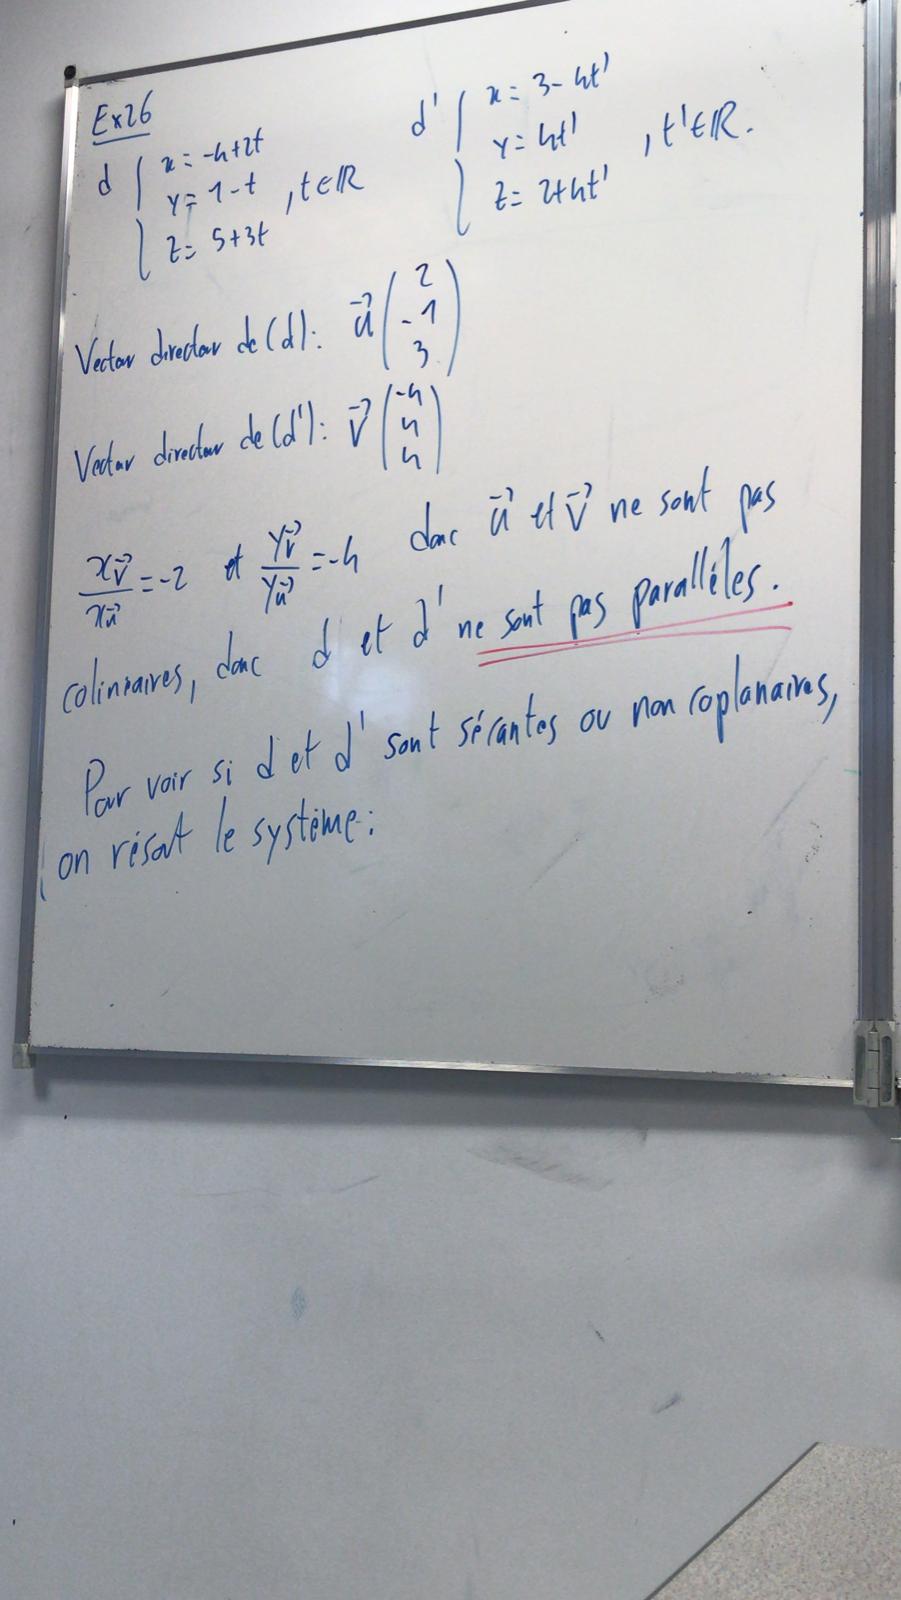 Ex26
d { x = -4+2t
y = 1-t , t∈ℝ
z = 5+3t
d' { x = 3-4t'
y = 4t' , t'∈ℝ.
z = 2+4t'
Vecteur directeur de (d): u⃗ (2
-1
3)
Vecteur directeur de (d'): v⃗ (-4
4
4)
xv⃗/xu⃗ = -2 et yv⃗/yu⃗ = -4 donc u⃗ et v⃗ ne sont pas
colinéaires, donc d et d' ne sont pas parallèles.
Pour voir si d et d' sont sécantes ou non coplanaires,
on résout le système: